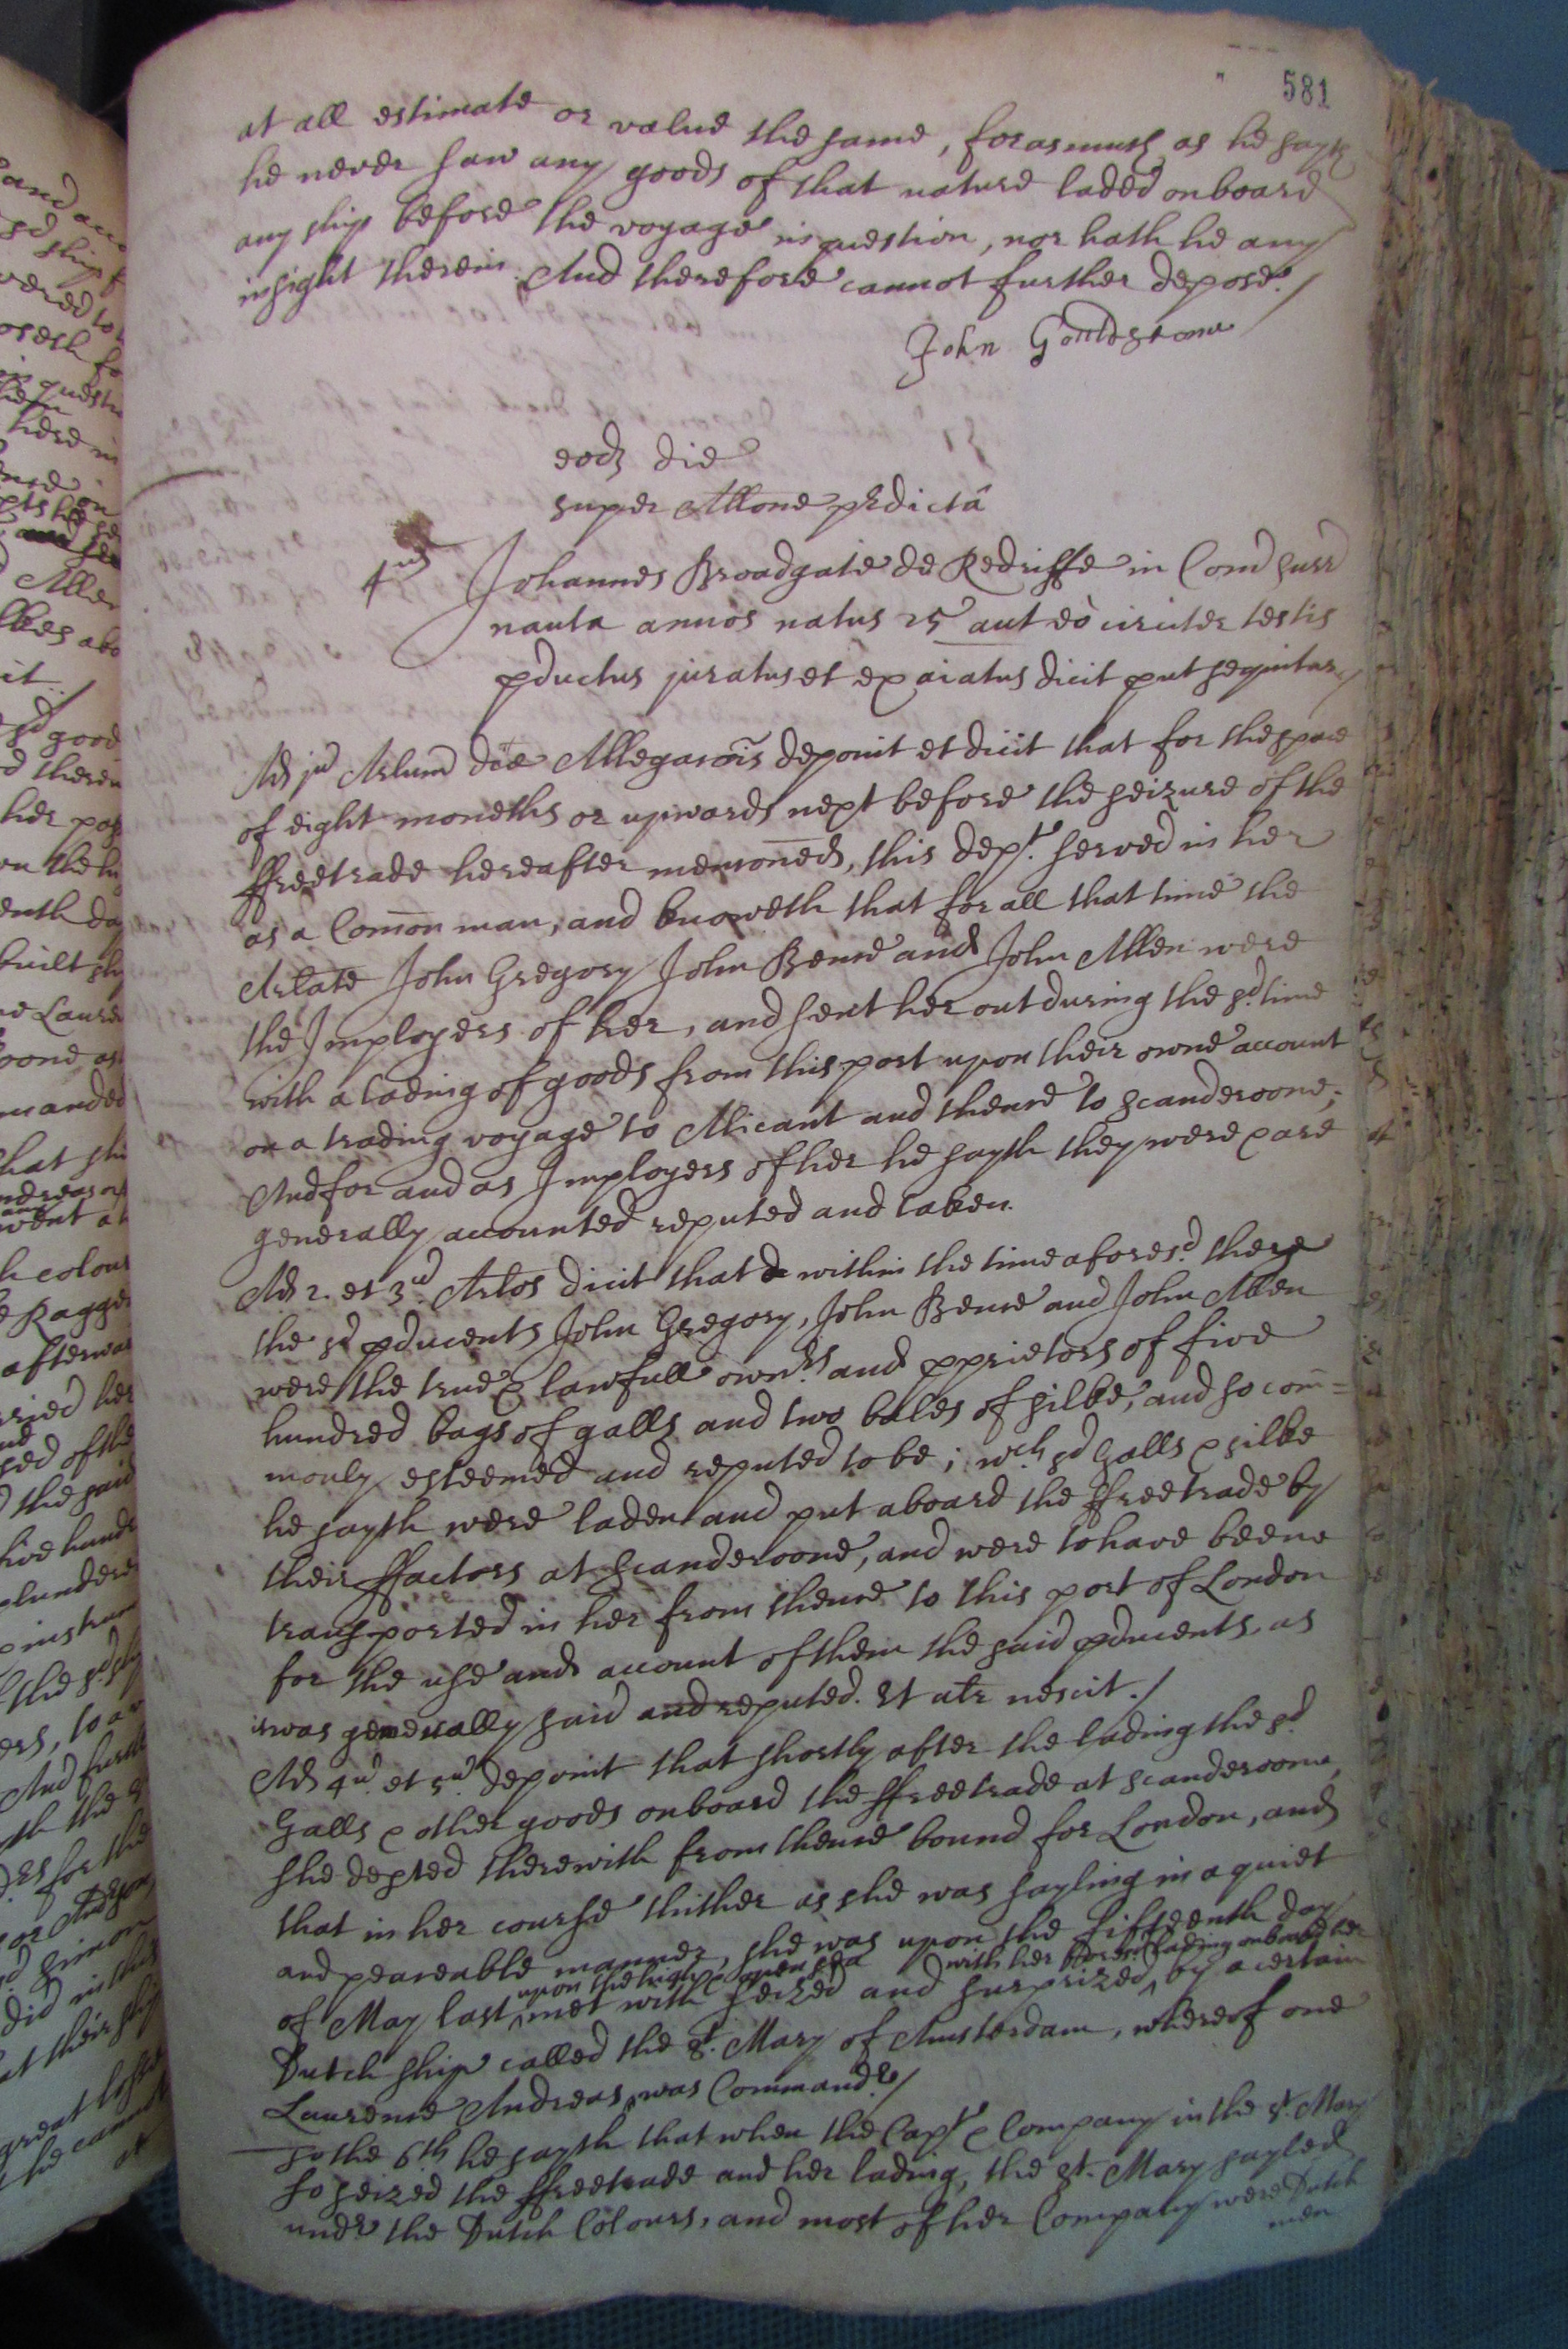 581
at all estimate or value the same, forasmuch as he sayth
he never saw any goods of that nature laded onboard
any ship before the voyage in question, nor hath he any
insight therein. And therefore cannot further depose./
John Gouldstone
eodẽ die
super Allõne prdictâ
4us Johannes Broadgate de Redriffe in Com̃ Surr
nauta annos natus 25 aut eò circiter testis
pductus juratus et exaĩatus dicit put sequitur./
Ad jũ Arlum dẽæ Allegaõnis deponit et dicit that for the space
of eight moneths or upwards next before the seizure of the
ffreetrade hereafter menconed, this dept. served in her
as a Com̃on man, and knoweth that for all that time the
Arlate John Gregory John Bence and John Allen were
the Imployers of her, and sent her out during the sd. time
with a lading of goods from this port upon their owne account
on a trading voyage to Alicant and thence to Scanderoone;
And for and as Imployers of her he sayth they were & are
generally accounted reputed and taken.
Ad 2. et 3ũ Arlos dicit that within the time aforesd. there
the sd pducents John Gregory, John Bence and John Allen
were the true & lawfull ownrs. and pprietors of five
hundred bags of galls and two bales of silke, and so com=
monly esteemed and reputed to be; wch. sd Galls & silke
he sayth were laden and put aboard the ffreetrade by
their ffactors at Scanderoone, and were to have beene
transported in her from thence to this port of London
for the use and account of them the said pducents, as
was generally said and reputed. Et alr nescit./
Ad 4ũ. et 5ũ. deponit that shortly after the lading the sd.
Galls & other goods onboard the ffreetrade at Scanderoone,
she depted therewith from thence bound for London, and
that in her course thither as she was sayling in a quiet
and peaceable manner, she was upon the fifteenth day
upon the high & open sea with her lading onboard her
of May last met with seized and surprized by a certain
Dutch ship called the St. Mary of Amsterdam, whereof one
Laurence Andreas was Commandr./
To the 6th he sayth that when the Capt. & Company in the St. Mary
so seized the ffreetrade and her lading, the St. Mary sayled
undr the Dutch Colours, and most of her Company were Dutch
men